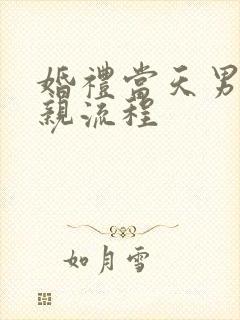 婚禮當天男
親流程
如月雪